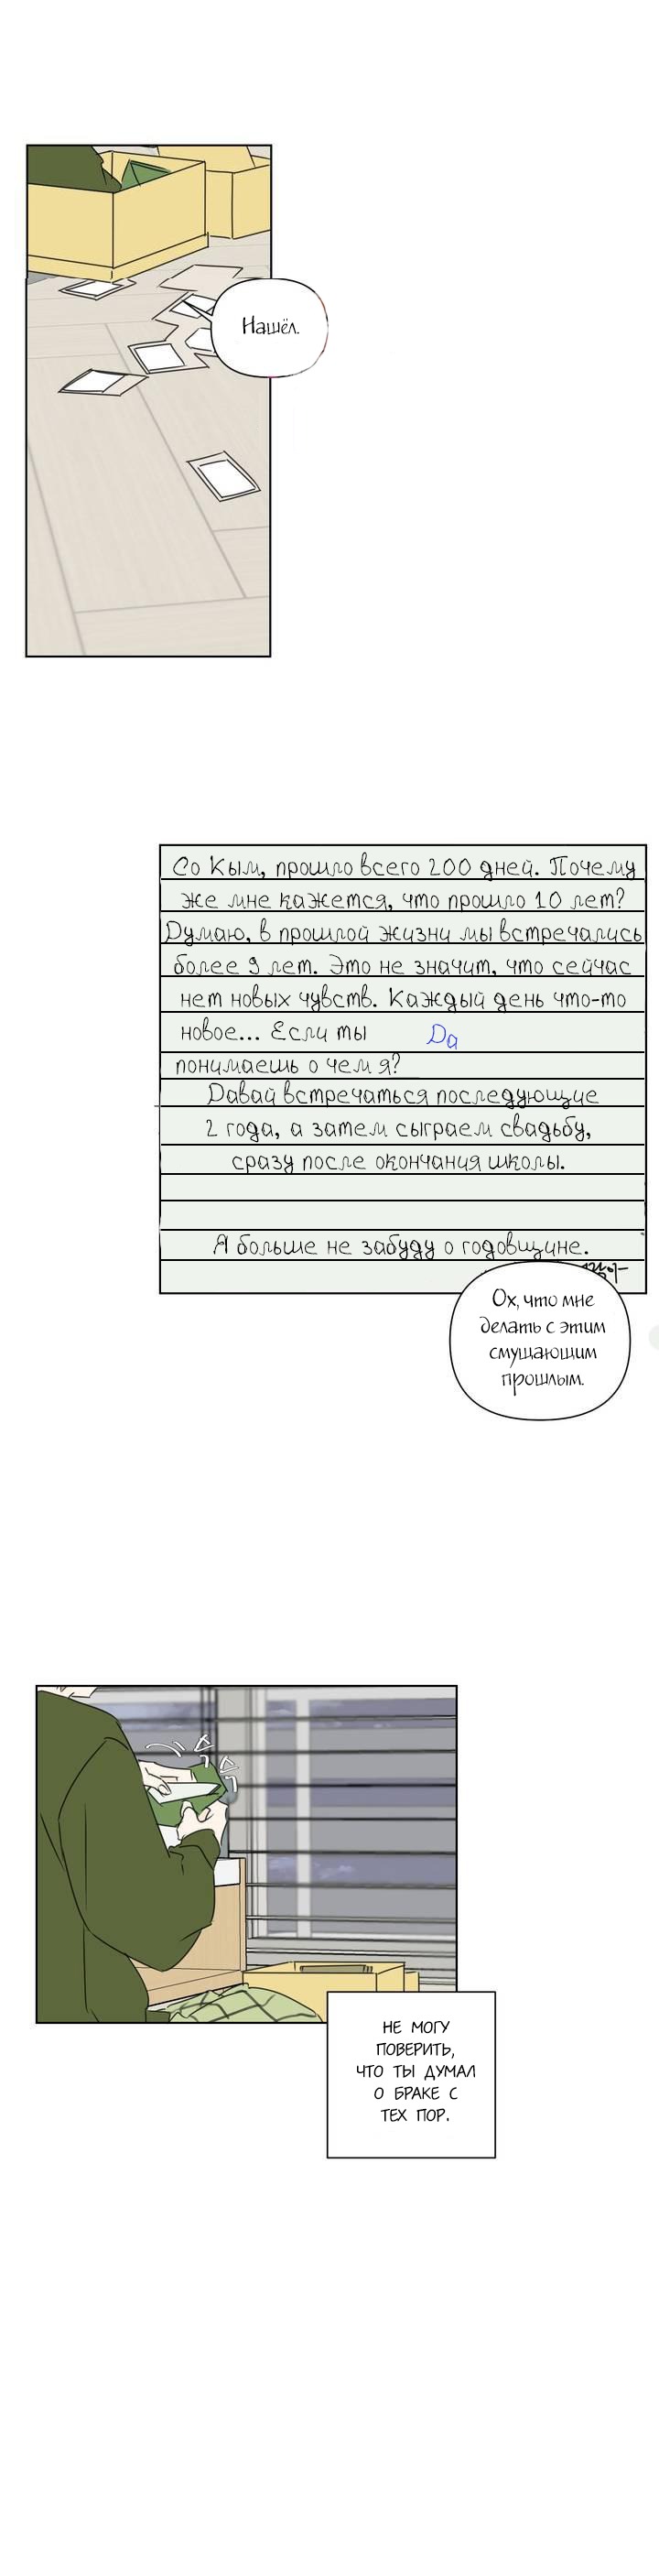 Нашёл.
Со Кым, прошло всего 200 дней. Почему
же мне кажется, что прошло 10 лет?
Думаю, в прошлой жизни мы встречались
более 9 лет. Это не значит, что сейчас
нет новых чувств. Каждый день что-то
новое... Если ты
Да
понимаешь о чем я?
Давай встречаться последующие
2 года, а затем сыграем свадьбу,
сразу после окончания школы.
Я больше не забуду о годовщине.
Ох, что мне
делать с этим
смущающим
прошлым.
НЕ МОГУ
ПОВЕРИТЬ,
ЧТО ТЫ ДУМАЛ
О БРАКЕ С
ТЕХ ПОР.